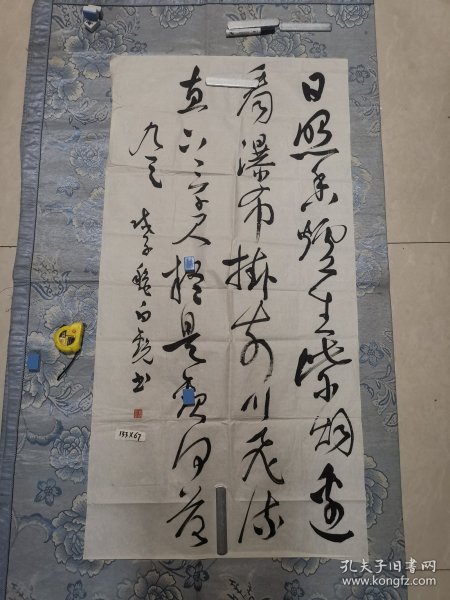 日照香爐生紫烟遥
看瀑布掛前川飛流
直下三千尺疑是銀河落
九天
书
133X67
孔夫子旧书网
www.kongfz.com